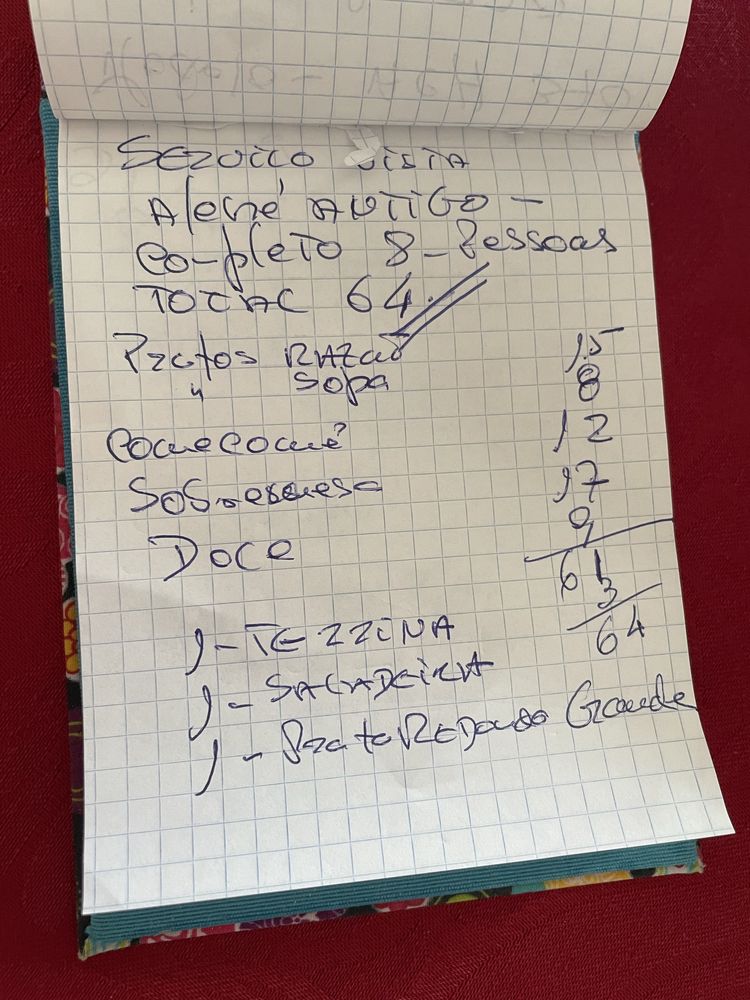 SERVICO VISTA
Alegré ANTIGO -
Completo 8 - Pessoas
TOTAL 64.
Pratos RAZAO 15
" Sopa 8
12
Sobremesa 17
Doce 9
61
3
64
1 - TERRINA
1 - SALADEIRA
1 - Prato REDONDO Grande